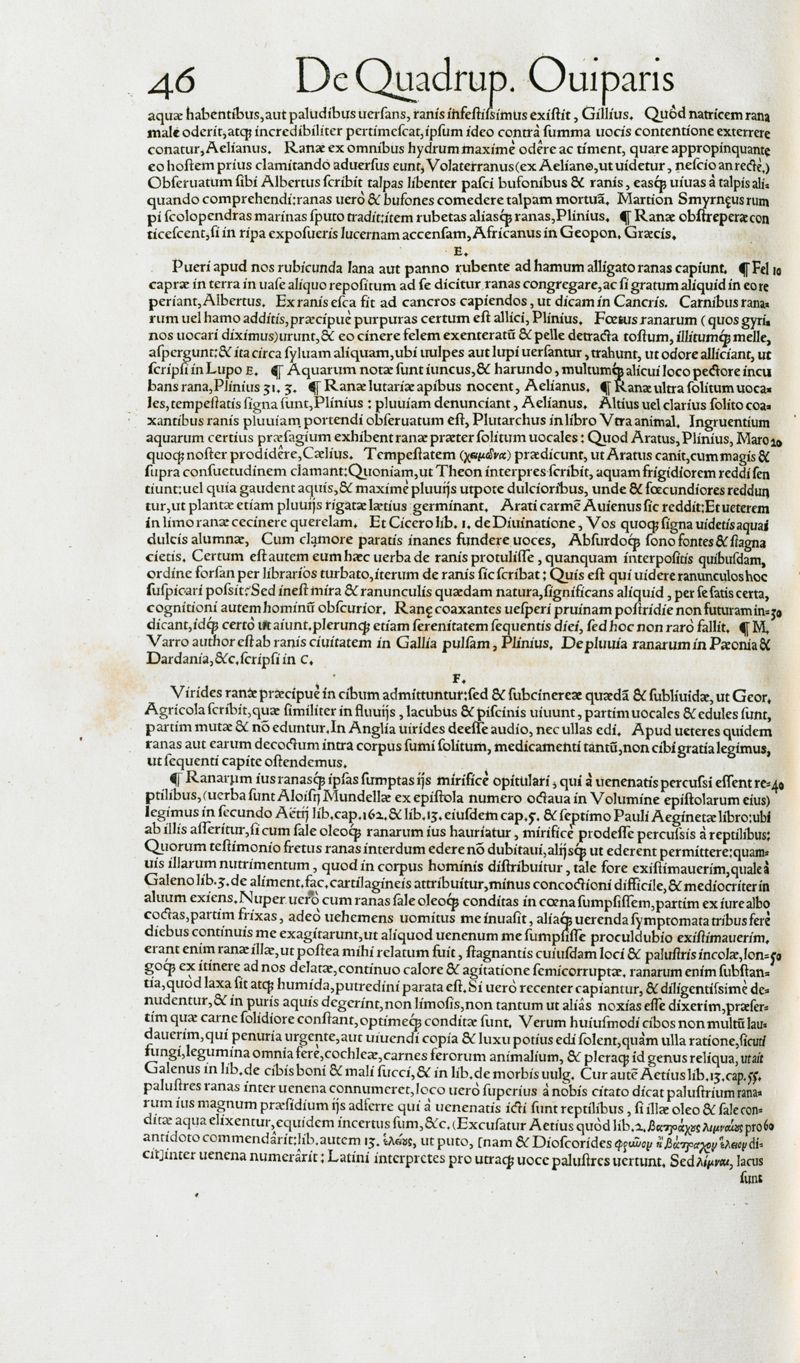 46 De Quadrup. Ouiparis
aquæ habentibus, aut paludibus uerſans, ranis infeſtiſsimus exiſtit, Gillius. Quòd natricem rana
male oderit, atq́ue incredibiliter pertimeſcat, ipſum ideo contrà ſumma uocis contentione exterrere
conatur, Aelianus. Ranæ ex omnibus hydrum maximè odêre ac timent, quare appropinquantę
eo hoſtem prius clamitando aduerſus eunt, Volaterranus (ex Aeliano, ut uidetur, neſcio an rectè.)
Obſeruatum ſibi Albertus ſcribit talpas libenter paſci bufonibus & ranis, easq́ue uiuas à talpis ali=
quando comprehendi: ranas uerò & bufones comedere talpam mortuã. Martion Smyrnęus rum
pi ſcolopendras marinas ſputo tradit: item rubetas aliasq́ue ranas, Plinius. ¶ Ranæ obſtreperæ con
ticeſcent, ſi in ripa expoſueris lucernam accenſam, Africanus in Geopon. Græcis.
E.
Pueri apud nos rubicunda lana aut panno rubente ad hamum alligato ranas capiunt. ¶ Fel 10
capræ in terra in uaſe aliquo repoſitum ad ſe dicitur ranas congregare, ac ſi gratum aliquid in eo re
periant, Albertus. Ex ranis eſca fit ad cancros capiendos, ut dicam in Cancris. Carnibus rana=
rum uel hamo additis, præcipuè purpuras certum eſt allici, Plinius. Fœtus ranarum (quos gyri=
nos uocari diximus) urunt, & eo cinere felem exenteratũ & pelle detracta toſtum, illitumq́ue melle,
aſpergunt: & ita circa ſyluam aliquam, ubi uulpes aut lupi uerſantur, trahunt, ut odore alliciant, ut
ſcripſi in Lupo E. ¶ Aquarum notæ ſunt iuncus, & harundo, multumq́ue alicui loco pectore incu
bans rana, Plinius 31. 3. ¶ Ranæ lutariæ apibus nocent, Aelianus. ¶ Ranæ ultra ſolitum uoca=
les, tempeſtatis ſigna ſunt, Plinius: pluuiam denunciant, Aelianus. Altius uel clarius ſolito coa=
xantibus ranis pluuiam portendi obſeruatum eſt, Plutarchus in libro Vtra animal. Ingruentium
aquarum certius præſagium exhibent ranæ præter ſolitum uocales: Quod Aratus, Plinius, Maro 20
quoq́ue noſter prodidêre, Cælius. Tempeſtatem (χειμῶνα) prædicunt, ut Aratus canit, cum magis &
ſupra conſuetudinem clamant: Quoniam, ut Theon interpres ſcribit, aquam frigidiorem reddi ſen
tiunt: uel quia gaudent aquis, & maximè pluuijs utpote dulcioribus, unde & fœcundiores reddun
tur, ut plantæ etiam pluuijs rigatæ lætius germinant. Arati carmẽ Auienus ſic reddit: Et ueterem
in limo ranæ cecinere querelam. Et Cicero lib. 1. de Diuinatione, Vos quoq́ue ſigna uidetis aquai
dulcis alumnæ, Cum clamore paratis inanes fundere uoces, Abſurdoq́ue ſono fontes & ſtagna
cietis. Certum eſt autem eum hæc uerba de ranis protuliſſe, quanquam interpoſitis quibuſdam,
ordine forſan per librarios turbato, iterum de ranis ſic ſcribat: Quis eſt qui uidere ranunculos hoc
ſuſpicari poſsit? Sed ineſt mira & ranunculis quædam natura, ſignificans aliquid, per ſe ſatis certa,
cognitioni autem hominũ obſcurior. Ranę coaxantes ueſperi pruinam poſtridie non futuram in= 30
dicant, idq́ue certò ut aiunt. plerunq́ue etiam ſerenitatem ſequentis diei, ſed hoc non rarò fallit. ¶ M.
Varro author eſt ab ranis ciuitatem in Gallia pulſam, Plinius. De pluuia ranarum in Pæonia &
Dardania, &c. ſcripſi in C.
F.
Virides ranæ præcipuè in cibum admittuntur: ſed & ſubcinereæ quædã & ſubliuidæ, ut Geor.
Agricola ſcribit, quæ ſimiliter in fluuijs, lacubus & piſcinis uiuunt, partim uocales & edules ſunt,
partim mutæ & nõ eduntur. In Anglia uirides deeſſe audio, nec ullas edi. Apud ueteres quidem
ranas aut earum decoctum intra corpus ſumi ſolitum, medicamenti tantũ, non cibi gratia legimus,
ut ſequenti capite oſtendemus.
¶ Ranarum ius ranasq́ue ipſas ſumptas ijs mirificè opitulari, qui à uenenatis percuſsi eſſent re= 40
ptilibus, (uerba ſunt Aloiſij Mundellæ ex epiſtola numero octaua in Volumine epiſtolarum eius)
legimus in ſecundo Aëtij lib. cap. 162. & lib. 13. eiuſdem cap. 5. & ſeptimo Pauli Aeginetæ libro: ubi
ab illis aſſeritur, ſi cum ſale oleoq́ue ranarum ius hauriatur, mirificè prodeſſe percuſsis à reptilibus:
Quorum teſtimonio fretus ranas interdum edere nõ dubitaui, alijsq́ue ut ederent permittere: quam=
uis illarum nutrimentum, quod in corpus hominis diſtribuitur, tale fore exiſtimauerim, quale à
Galeno lib. 3. de aliment. fac. cartilagineis attribuitur, minus concoctioni difficile, & mediocriter in
aluum exiens. Nuper uerò cum ranas ſale oleoq́ue conditas in cœna ſumpſiſſem, partim ex iure albo
coctas, partim frixas, adeò uehemens uomitus me inuaſit, aliaq́ue uerenda ſymptomata tribus ferè
diebus continuis me exagitarunt, ut aliquod uenenum me ſumpſiſſe proculdubio exiſtimauerim.
erant enim ranæ illæ, ut poſtea mihi relatum fuit, ſtagnantis cuiuſdam loci & paluſtris incolæ, lon= 50
goq́ue ex itinere ad nos delatæ, continuo calore & agitatione ſemicorruptæ. ranarum enim ſubſtan=
tia, quòd laxa ſit atq́ue humida, putredini parata eſt. Si uerò recenter capiantur, & diligentiſsimè de=
nudentur, & in puris aquis degerint, non limoſis, non tantum ut aliâs noxias eſſe dixerim, præſer=
tim quæ carne ſolidiore conſtant, optimeq́ue conditæ ſunt. Verum huiuſmodi cibos non multũ lau=
dauerim, qui penuria urgente, aut uiuendi copia & luxu potius edi ſolent, quàm ulla ratione, ſicuti
fungi, legumina omnia ferè, cochleæ, carnes ferorum animalium, & pleraq́ue id genus reliqua, ut ait
Galenus in lib. de cibis boni & mali ſucci, & in lib. de morbis uulg. Cur autẽ Aetius lib. 13. cap. 55.
paluſtres ranas inter uenena connumeret, loco uerò ſuperius à nobis citato dicat paluſtrium rana=
rum ius magnum præſidium ijs adferre qui à uenenatis icti ſunt reptilibus, ſi illæ oleo & ſale con=
ditæ aqua elixentur, equidem incertus ſum, &c. (Excuſatur Aetius quòd lib. 2. βατράχους λιμναίους pro 60
antidoto commendârit: lib. autem 13. ἑλείους, ut puto, [nam & Dioſcorides φρῦνον ἢ βάτραχον ἕλειον di=
cit] inter uenena numerârit: Latini interpretes pro utraq́ue uoce paluſtres uertunt. Sed λίμναι, lacus
ſunt